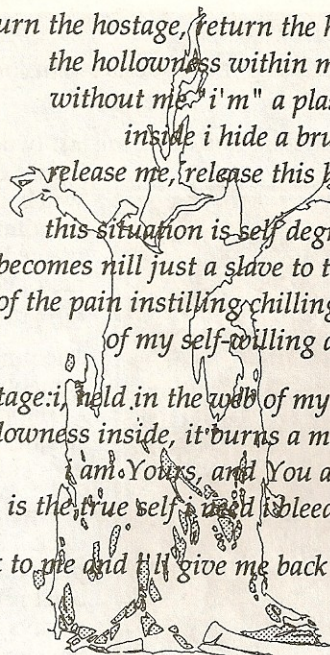 urn the hostage, return the h
the hollowness within m
without me "i'm" a plas
inside i hide a bru
release me, release this
this situation is self degr
becomes nill just a slave to t
of the pain instilling chilling
of my self-willing a
tage:i, held in the web of my
lowness inside, it burns a m
i am Yours, and You a
is the true self i need i bleed
to me and i'll give me back